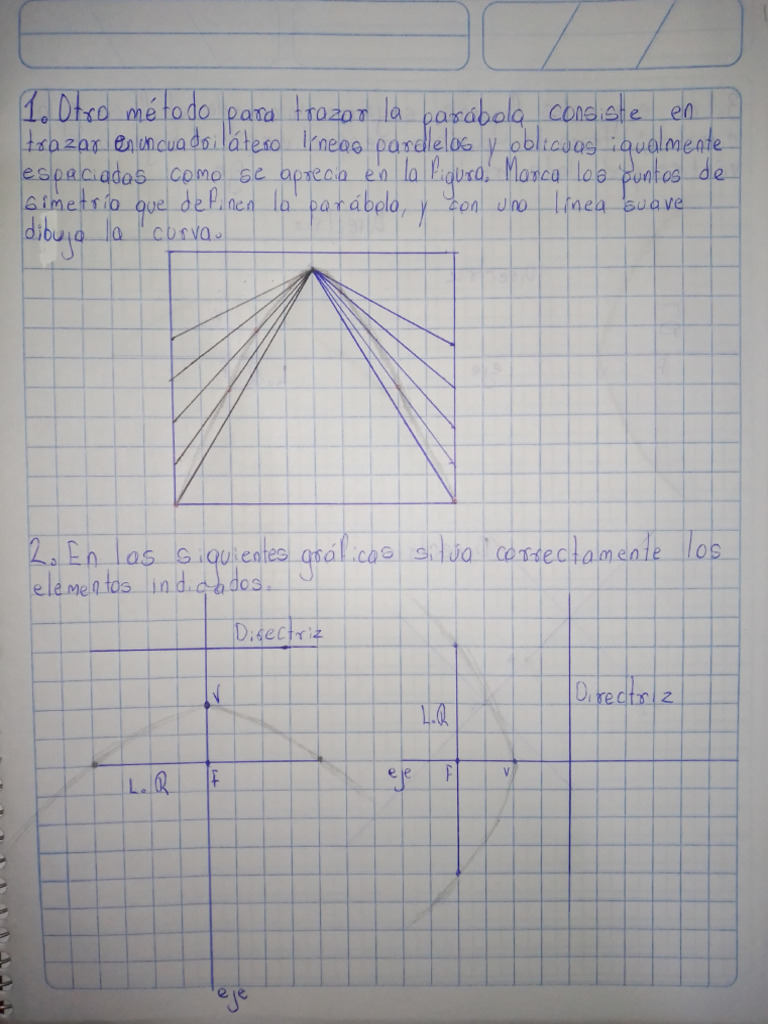 1. Otro método para trazar la parábola consiste en
trazar en un cuadrilátero líneas paralelas y oblicuas igualmente
espaciadas como se aprecia en la figura. Marca los puntos de
simetría que definen la parábola, y con una línea suave
dibuja la curva.
2. En las siguientes gráficas sitúa correctamente los
elementos indicados.
Directriz
V
L.R
F
eje
Directriz
L.R
eje F V